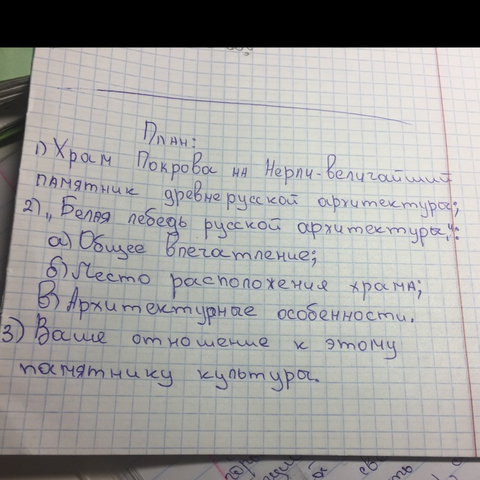 План:
1) Храм Покрова на Нерли-величайший
памятник древнерусской архитектуры;
2) „Белая лебедь русской архитектуры“:
а) Общее впечатление;
б) Место расположения храма;
в) Архитектурные особенности.
3) Ваше отношение к этому
памятнику культуры.